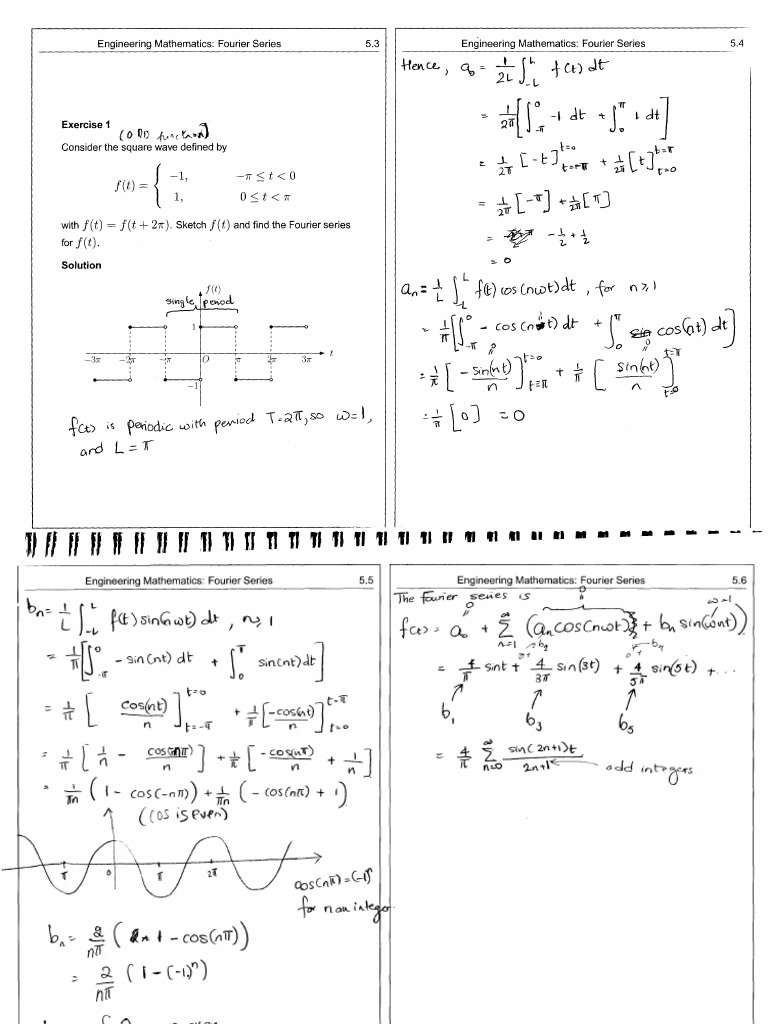 Engineering Mathematics: Fourier Series 5.3
Exercise 1
(ODD function)
Consider the square wave defined by
f(t) = { −1, −π ≤ t < 0
1, 0 ≤ t < π
with f(t) = f(t + 2π). Sketch f(t) and find the Fourier series
for f(t).
Solution
f(t)
single period
1
−3π −2π −π O π 2π 3π t
−1
f(t) is periodic with period T=2π, so ω=1,
and L = π
Engineering Mathematics: Fourier Series 5.4
Hence, a₀ = 1/2L ∫_{-L}^{L} f(t) dt
= 1/2π [∫_{-π}^{0} -1 dt + ∫_{0}^{π} 1 dt]
= 1/2π [-t]_{t=-π}^{t=0} + 1/2π [t]_{t=0}^{t=π}
= 1/2π [-π] + 1/2π [π]
= -1/2 + 1/2
= 0
aₙ = 1/L ∫_{-L}^{L} f(t) cos(nωt) dt, for n ≥ 1
= 1/π [∫_{-π}^{0} - cos(nt) dt + ∫_{0}^{π} cos(nt) dt]
= 1/π [- sin(nt)/n]_{t=-π}^{t=0} + 1/π [sin(nt)/n]_{t=0}^{t=π}
= 1/π [0] = 0
Engineering Mathematics: Fourier Series 5.5
bₙ = 1/L ∫_{-L}^{L} f(t) sin(nωt) dt, n ≥ 1
= 1/π [∫_{-π}^{0} - sin(nt) dt + ∫_{0}^{π} sin(nt) dt]
= 1/π [cos(nt)/n]_{t=-π}^{t=0} + 1/π [-cos(nt)/n]_{t=0}^{t=π}
= 1/π [1/n - cos(-nπ)/n] + 1/π [-cos(nπ)/n + 1/n]
= 1/πn (1 - cos(-nπ)) + 1/πn (- cos(nπ) + 1)
(cos is even)
π 0 π 2π
cos(nπ) = (-1)ⁿ
for n an integer
bₙ = 2/nπ (1 - cos(nπ))
= 2/nπ (1 - (-1)ⁿ)
Engineering Mathematics: Fourier Series 5.6
The fourier series is 0
0 ω=1
f(t) = a₀ + Σ_{n=1}^{∞} (aₙ cos(nωt) + bₙ sin(ωnt))
b₂ b₄
= 4/π sint + 4/3π sin(3t) + 4/5π sin(5t) + ...
b₁ b₃ b₅
= 4/π Σ_{n=0}^{∞} sin(2n+1)t / 2n+1 odd integers